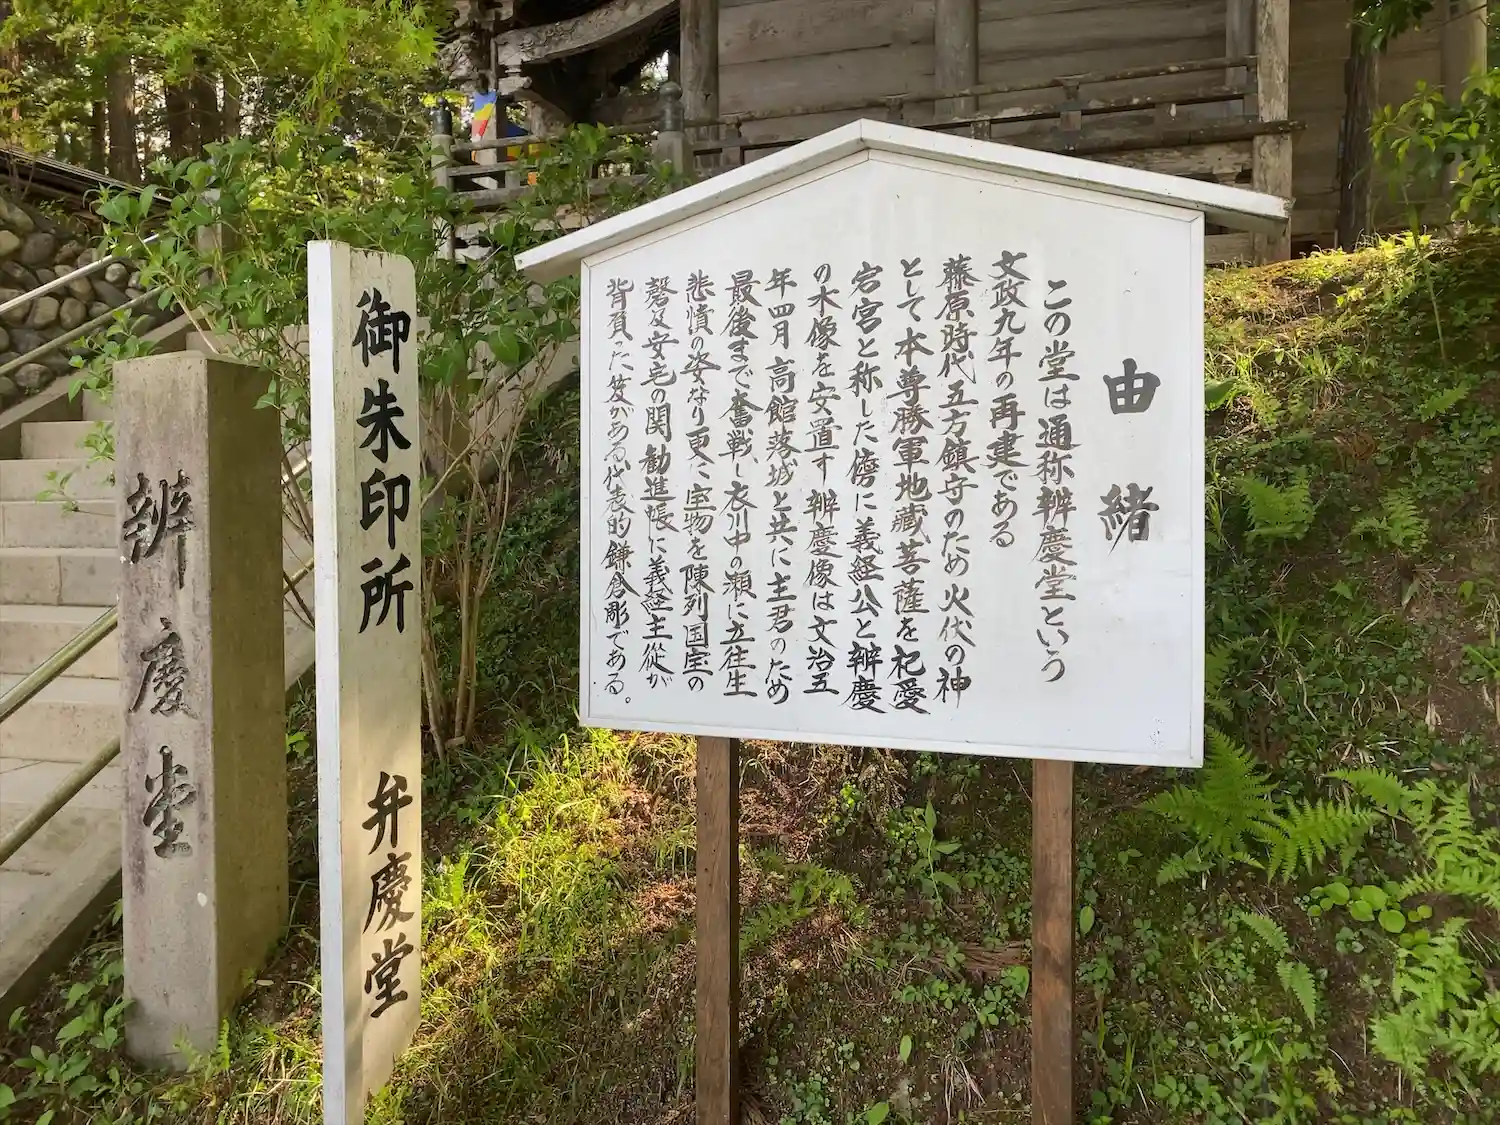 由緒
この堂は通称辨慶堂という
文政九年の再建である
藤原時代五方鎮守のため火伏の神
として本尊勝軍地蔵菩薩を祀愛
宕宮と称した傍に義経公と辨慶
の木像を安置す辨慶像は文治五
年四月高館落城と共に主君のため
最後まで奮戦し衣川中の瀬に立往生
悲憤の姿なり更に宝物を陳列国宝の
磬及安宅の関勧進帳に義経主従が
背負った笈がある代表的鎌倉彫である。
御朱印所 弁慶堂
辨慶堂